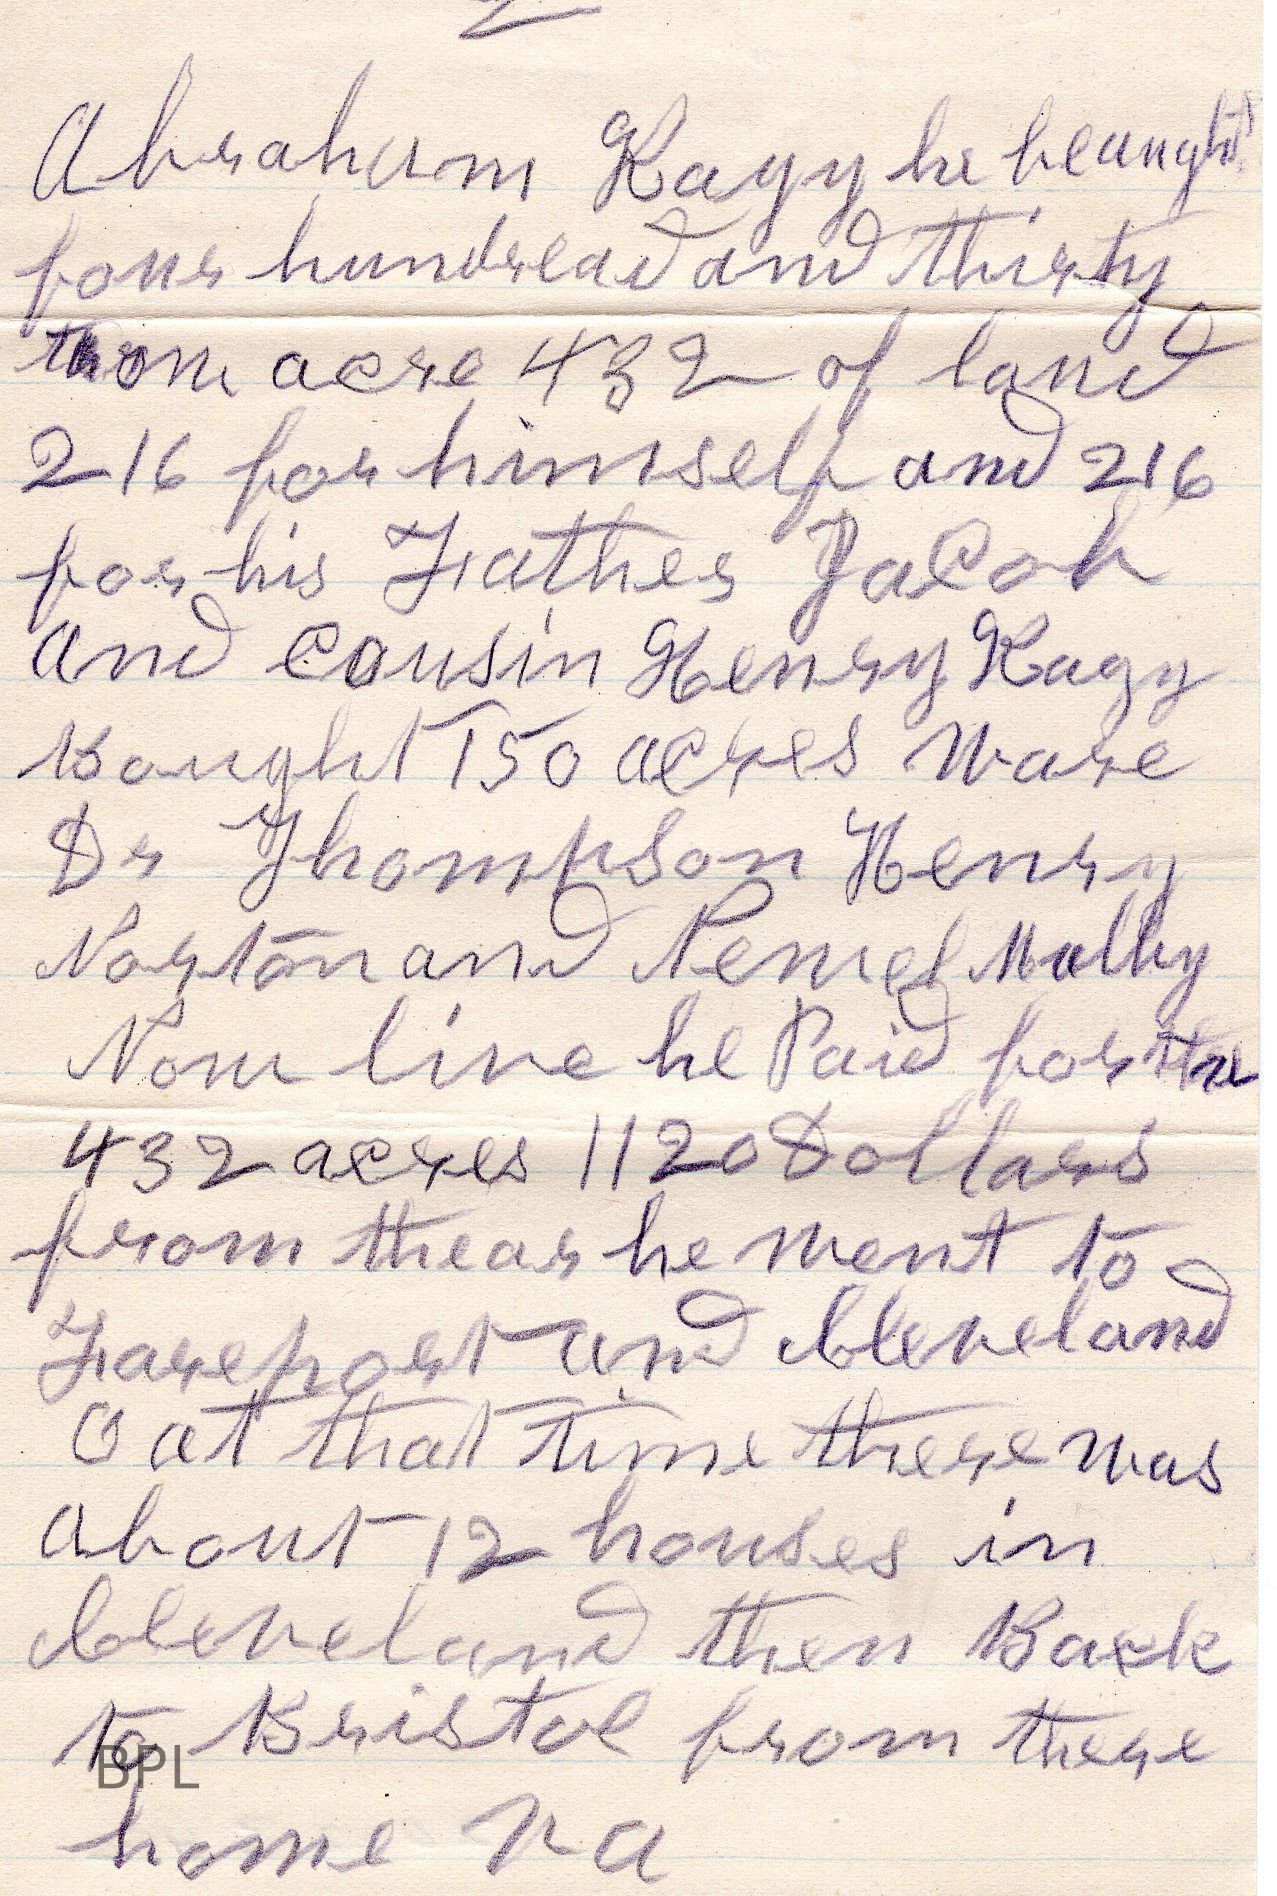 2
Abraham Kagy he beaught
four hundread and thirty
acre 432 of land
216 for himself and 216
for his Father Jacob
and Cousin Henry Kagy
Bought 150 acres ware
Dr Thompson Henry
Norton and Mallby
Now live he Paid for the
432 acres 1120 Dollars
from thear he went to
Fareport and Cleveland
O at that time there was
about 12 houses in
Cleveland then Back
to Bristol from there
home va
BPL